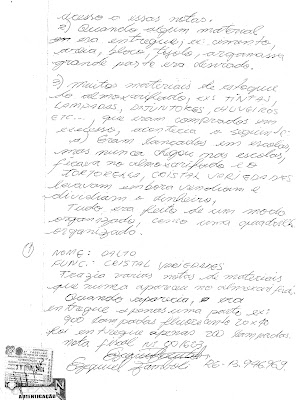 acesso a essas notas.
2) Quando algum material
era entregue, ex cimento,
areia, bloco, tijolo, argamassa
grande parte era desviado.
3) Muitos materiais de estoque
do almoxarifado, ex: TINTAS,
LAMPADAS, EXTINTORES, CHUVEIROS
ETC..., que eram comprados em
excesso, acontecia o seguinte:
a) Eram lançados em escolas,
mas nunca chegou nas escolas,
ficava no almoxarifado e o
CRISTAL VARIEDADES
levavam embora vendiam e
dividiam o dinheiro,
Tudo era feito de um modo
organizado, como uma quadrilha
organizada.
NOME: DALTO
FUNC: CRISTAL VARIEDADES
Trazia varias notas de materiais
que nunca apareceu no almoxarifado.
Quando aparecia, era
entregue apenas uma parte ex:
900 lampadas fluorescente 20x40
foi entregue apenas 200 lampadas.
nota fiscal Nº 001603
Ezequiel
AUTENTICAÇÃO